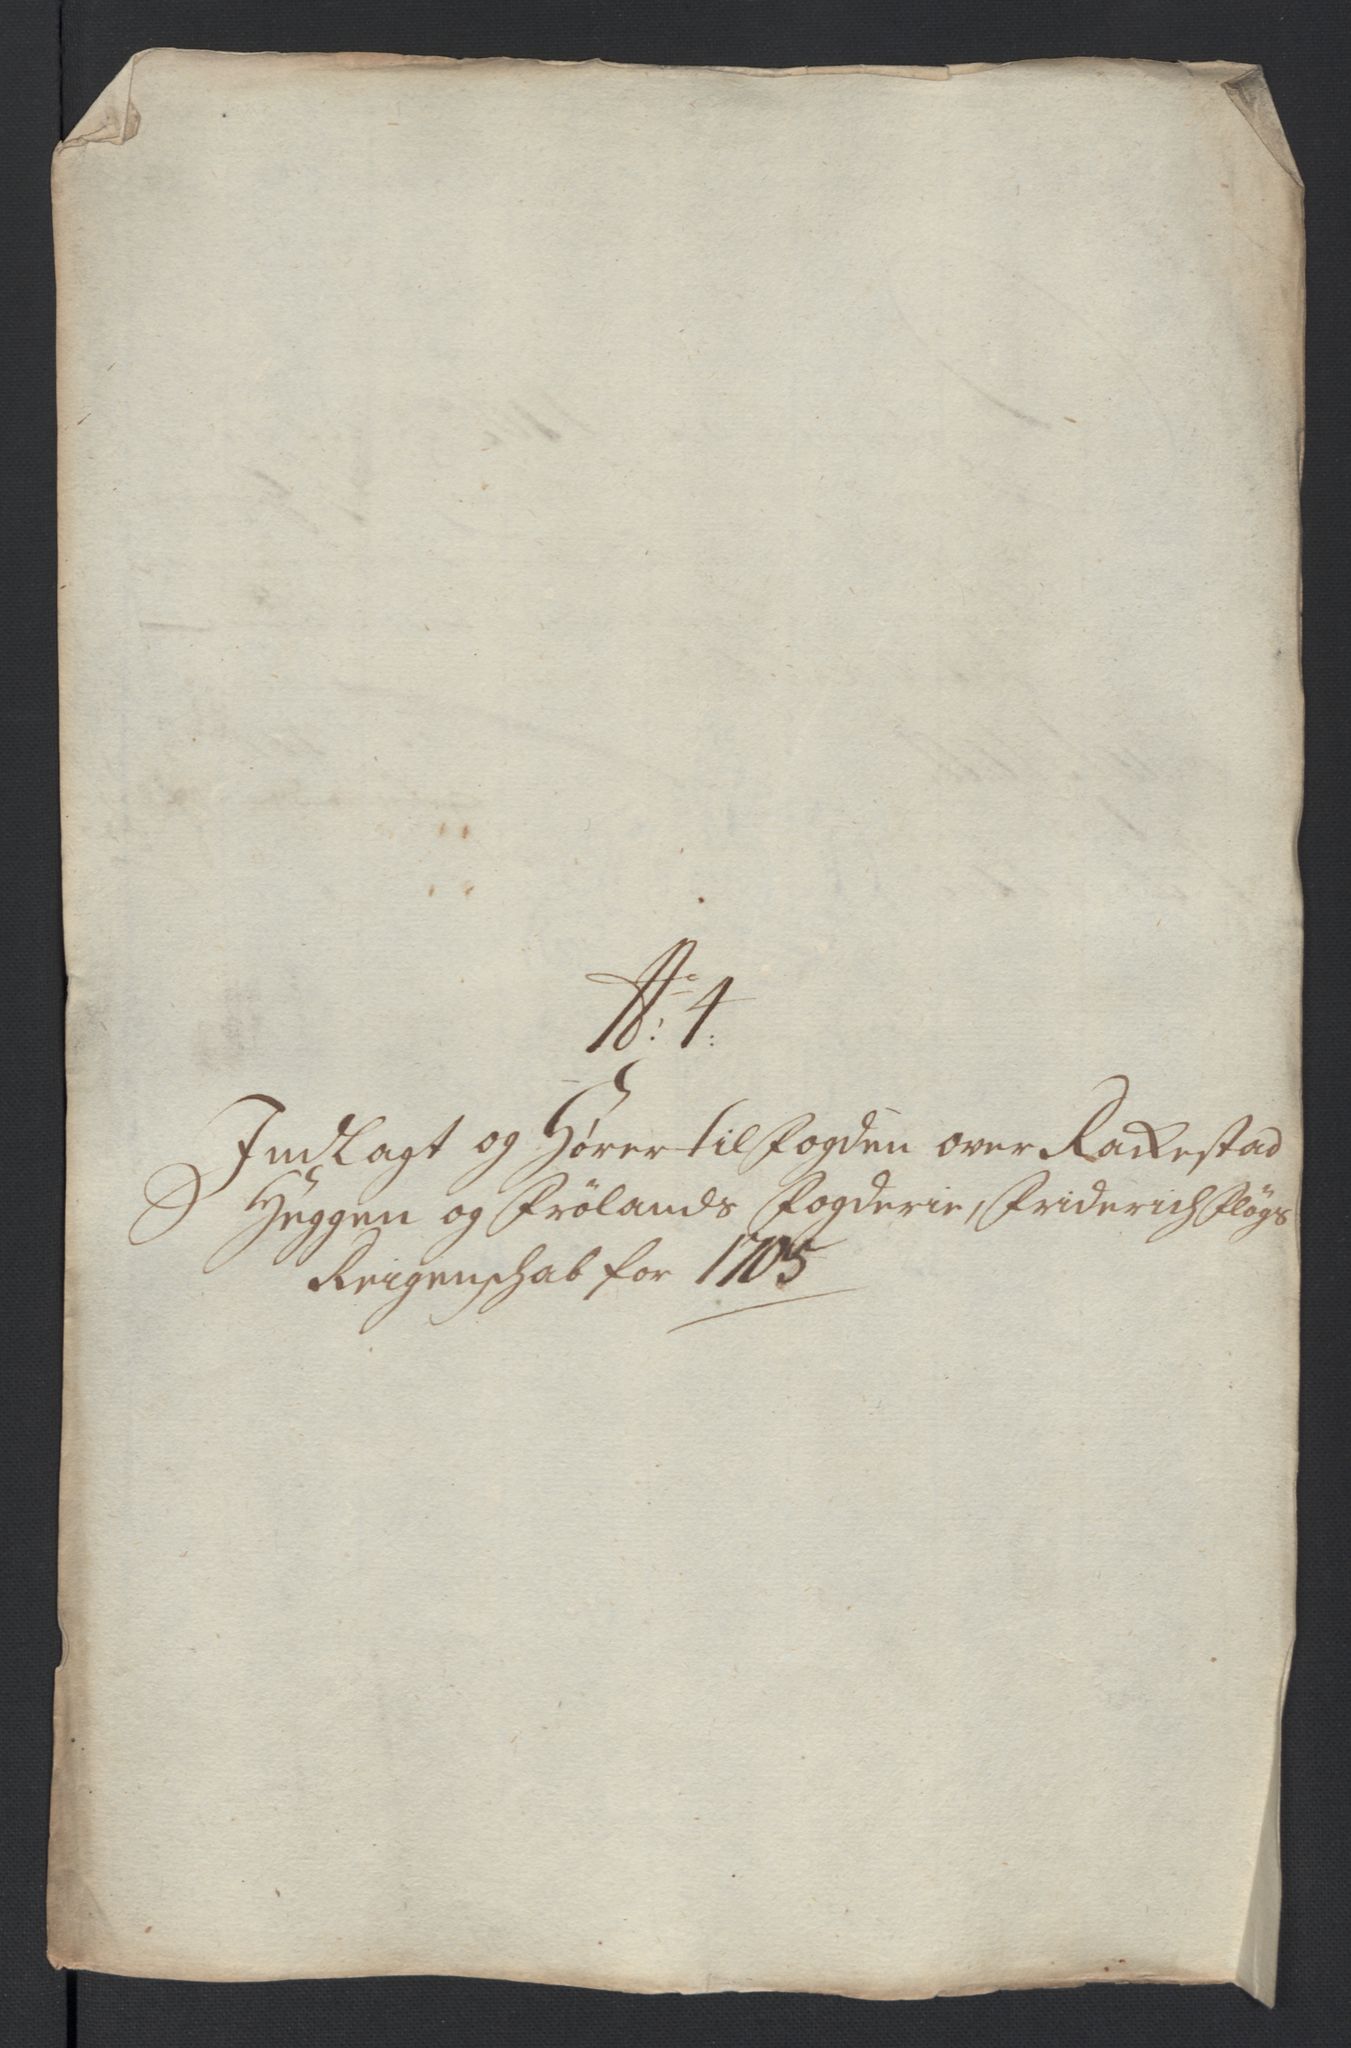 No: 4:
Indlagt og Hører til Fogden over Rackestad
Heggen og Frölands Fogderie, Friderich Flögs
Reigenschab for 1705